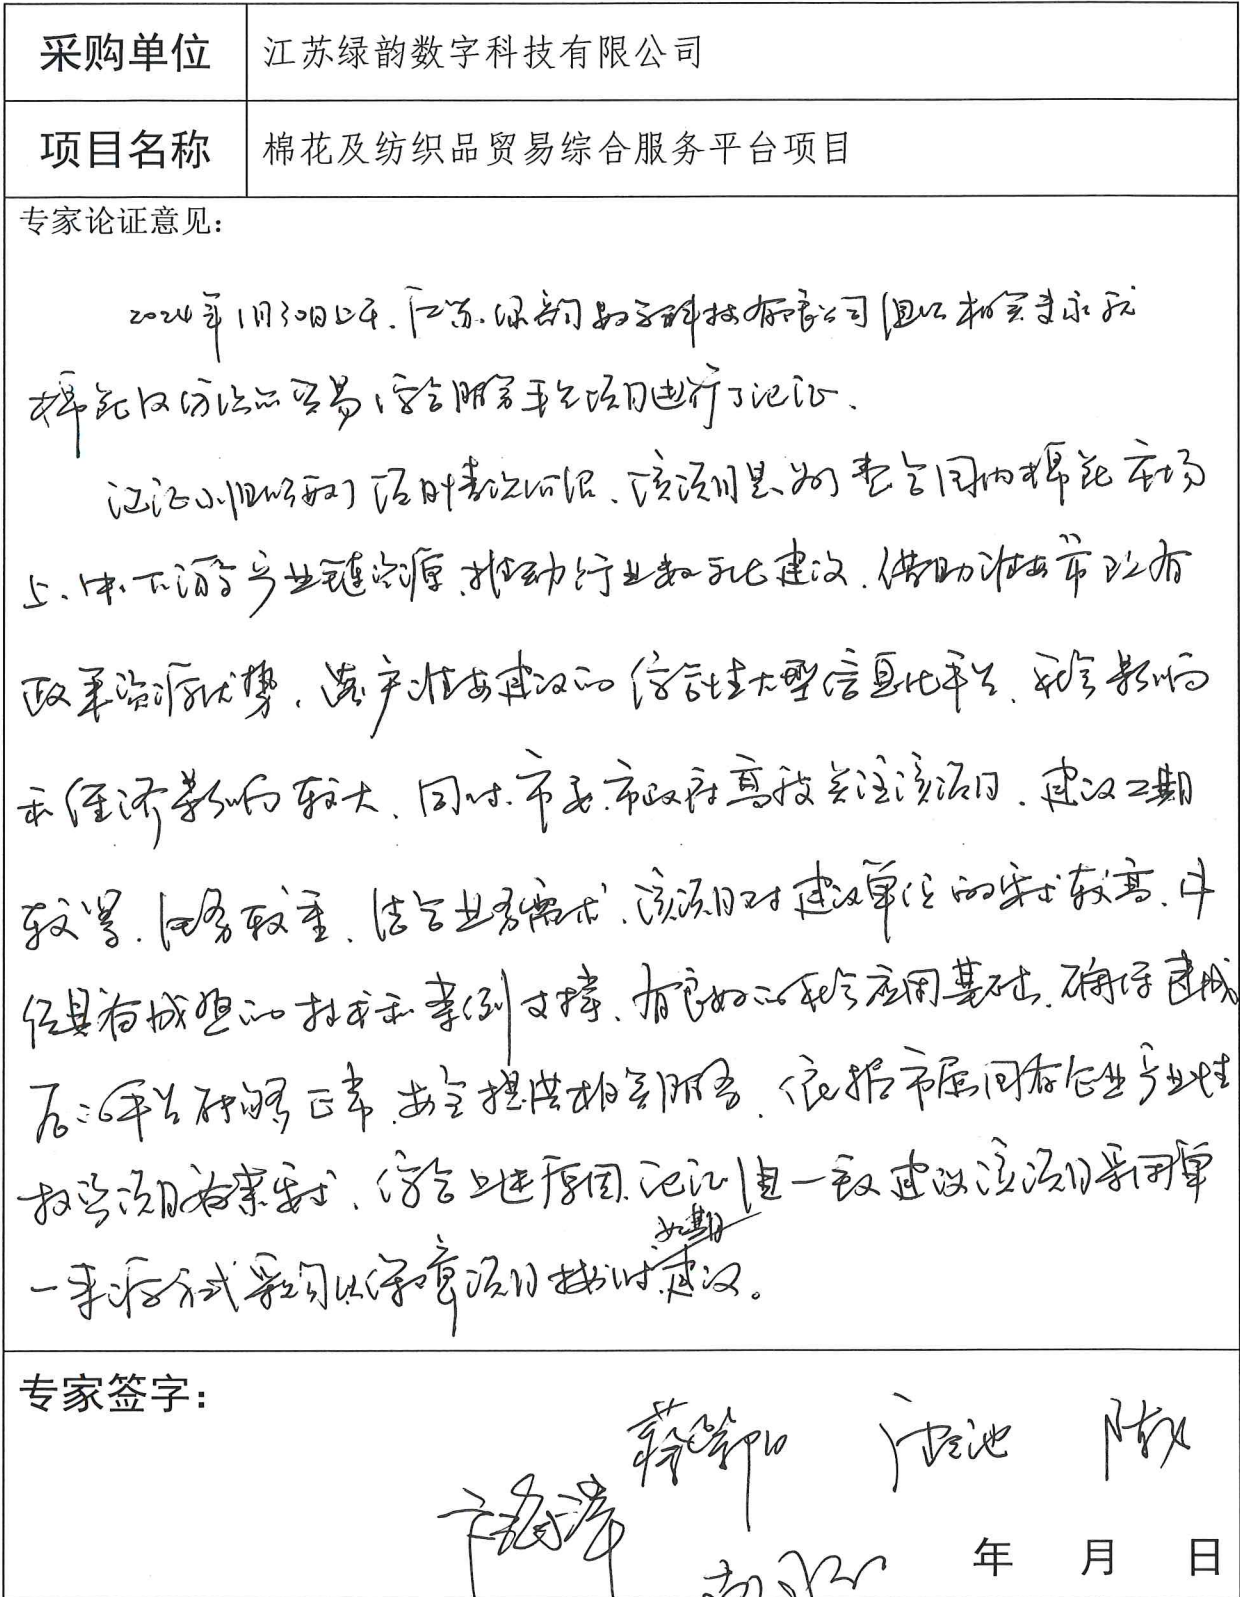 采购单位 江苏绿韵数字科技有限公司
项目名称 棉花及纺织品贸易综合服务平台项目
专家论证意见：
2024年1月30日上午，江苏绿韵数字科技有限公司组织相关专家就
棉花及纺织品贸易综合服务平台项目进行了论证。
论证小组听取了项目情况介绍，该项目是为了整合国内棉花市场
上、中、下游产业链资源，推动行业数字化建设，借助淮安市现有
政策资源优势，落户淮安建设的综合性大型信息化平台，社会影响
和经济影响较大，同时，市委、市政府高度关注该项目，建设工期
较紧，任务较重，结合业务需求，该项目对建设单位的要求较高，
具有成熟的技术和案例支撑，有良好的社会应用基础，确保建成
后的平台能够正常、安全提供相关服务，依据市属国有企业产业性
投资项目备案要求，综合上述原因，论证组一致建议该项目采用单
一来源方式采购以保障项目按时如期建设。
专家签字：
年 月 日